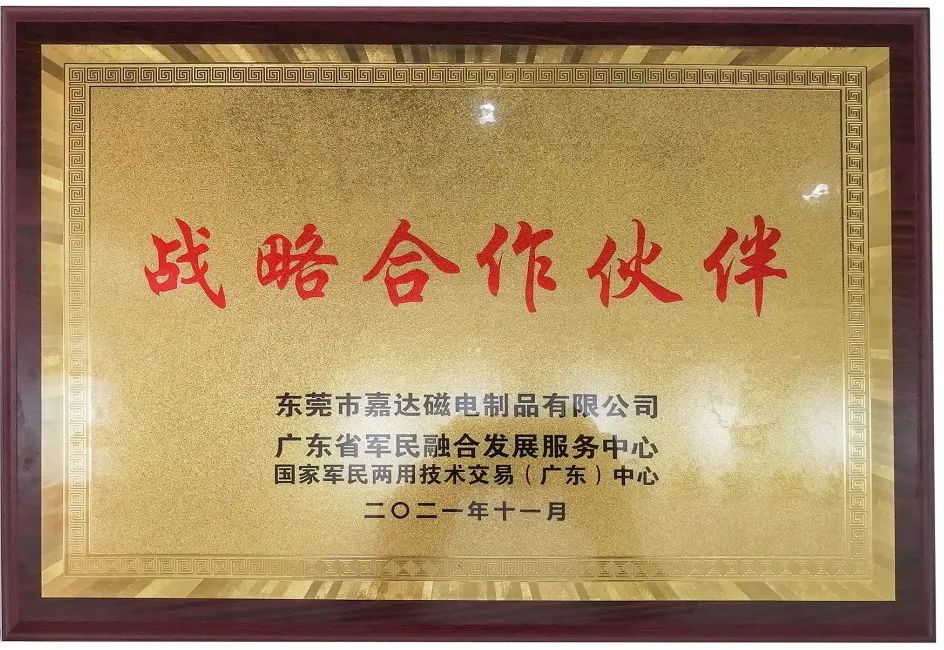 战略合作伙伴
东莞市嘉达磁电制品有限公司
广东省军民融合发展服务中心
国家军民两用技术交易(广东)中心
二〇二一年十一月